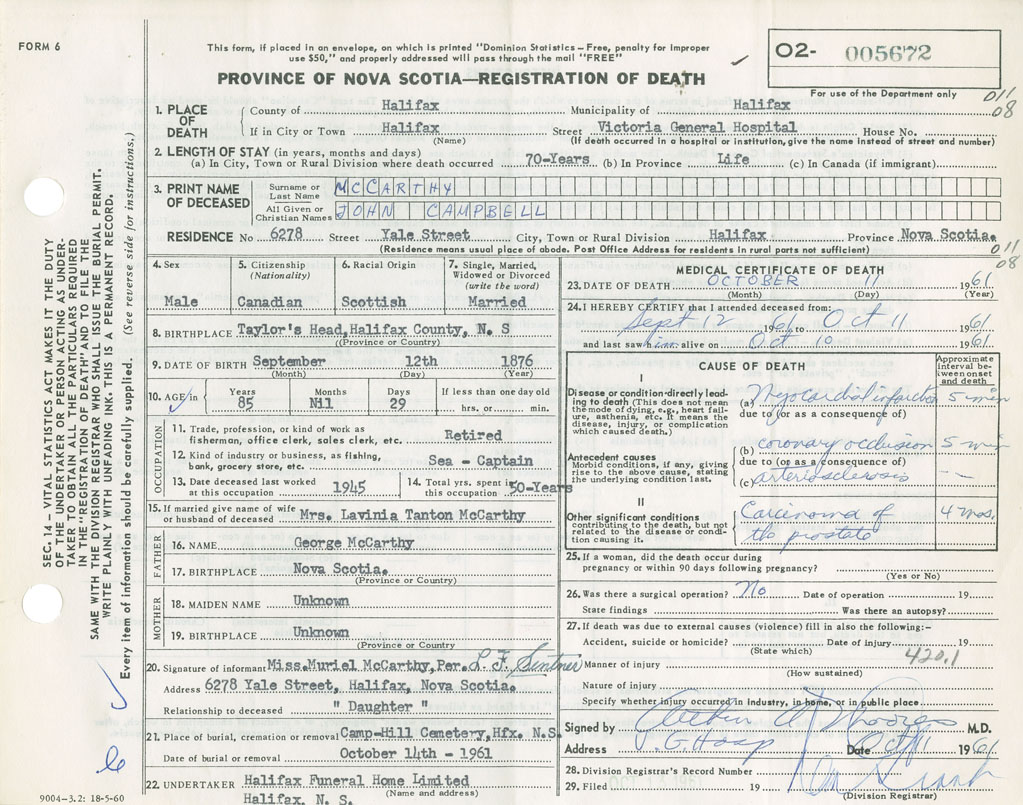 FORM 6
This form, if placed in an envelope, on which is printed "Dominion Statistics – Free, penalty for improper
use $50," and properly addressed will pass through the mail "FREE"
PROVINCE OF NOVA SCOTIA—REGISTRATION OF DEATH
02- 005672
For use of the Department only
011
08
1. PLACE OF DEATH
County of Halifax Municipality of Halifax
If in City or Town Halifax Street Victoria General Hospital House No.
(Name) (If death occurred in a hospital or institution, give the name instead of street and number)
2. LENGTH OF STAY (in years, months and days)
(a) In City, Town or Rural Division where death occurred 70-Years (b) In Province Life (c) In Canada (if immigrant)
3. PRINT NAME OF DECEASED
Surname or Last Name McCARTHY
All Given or Christian Names JOHN CAMPBELL
RESIDENCE No 6278 Street Yale Street City, Town or Rural Division Halifax Province Nova Scotia.
(Residence means usual place of abode. Post Office Address for residents in rural parts not sufficient)
011
08
4. Sex
Male
5. Citizenship (Nationality)
Canadian
6. Racial Origin
Scottish
7. Single, Married, Widowed or Divorced (write the word)
Married
8. BIRTHPLACE Taylor's Head, Halifax County, N. S
(Province or Country)
9. DATE OF BIRTH September 12th 1876
(Month) (Day) (Year)
10. AGE in Years 85 Months Nil Days 29 If less than one day old hrs. or min.
OCCUPATION
11. Trade, profession, or kind of work as
fisherman, office clerk, sales clerk, etc. Retired
12. Kind of industry or business, as fishing,
bank, grocery store, etc. Sea - Captain
13. Date deceased last worked at this occupation 1945
14. Total yrs. spent in this occupation 50-Years
15. If married give name of wife
or husband of deceased Mrs. Lavinia Tanton McCarthy
FATHER
16. NAME George McCarthy
17. BIRTHPLACE Nova Scotia.
(Province or Country)
MOTHER
18. MAIDEN NAME Unknown
19. BIRTHPLACE Unknown
(Province or Country)
20. Signature of informant Miss. Muriel McCarthy, Per. L. F.
Address 6278 Yale Street, Halifax, Nova Scotia.
Relationship to deceased " Daughter "
21. Place of burial, cremation or removal Camp-Hill Cemetery, Hfx. N.S.
Date of burial or removal October 14th - 1961
22. UNDERTAKER Halifax Funeral Home Limited
(Name and address)
Halifax, N. S.
MEDICAL CERTIFICATE OF DEATH
23. DATE OF DEATH OCTOBER 11 1961
(Month) (Day) (Year)
24. I HEREBY CERTIFY that I attended deceased from:
Sept 12 1961 to Oct 11 1961
and last saw him alive on Oct 10 1961
CAUSE OF DEATH
Approximate interval between onset and death
I
Disease or condition directly leading to death (This does not mean the mode of dying, e.g., heart failure, asthenia, etc. It means the disease, injury, or complication which caused death)
(a) Myocardial infarction 5 min
due to (or as a consequence of)
Antecedent causes
Morbid conditions, if any, giving rise to the above cause, stating the underlying condition last.
(b) coronary occlusion 5 min
due to (or as a consequence of)
(c) arteriosclerosis —
II
Other significant conditions contributing to the death, but not related to the disease or condition causing it.
Carcinoma of the prostate 4 mos.
25. If a woman, did the death occur during
pregnancy or within 90 days following pregnancy?
(Yes or No)
26. Was there a surgical operation? No Date of operation 19
State findings Was there an autopsy?
27. If death was due to external causes (violence) fill in also the following:–
Accident, suicide or homicide? Date of injury 19
(State which)
420.1
Manner of injury
(How sustained)
Nature of injury
Specify whether injury occurred in industry, in home, or in public place
Signed by M.D.
Address V. G. Hosp Date Oct 11 1961
28. Division Registrar's Record Number
29. Filed 19
(Division Registrar)
SEC. 14 – VITAL STATISTICS ACT MAKES IT THE DUTY
OF THE UNDERTAKER OR PERSON ACTING AS UNDER-
TAKER TO OBTAIN ALL THE PARTICULARS REQUIRED
IN THE "REGISTRATION OF DEATH" AND TO FILE THE
SAME WITH THE DIVISION REGISTRAR WHO SHALL ISSUE THE BURIAL PERMIT.
WRITE PLAINLY WITH UNFADING INK. THIS IS A PERMANENT RECORD.
Every item of information should be carefully supplied. (See reverse side for instructions.)
9004-3.2: 18-5-60